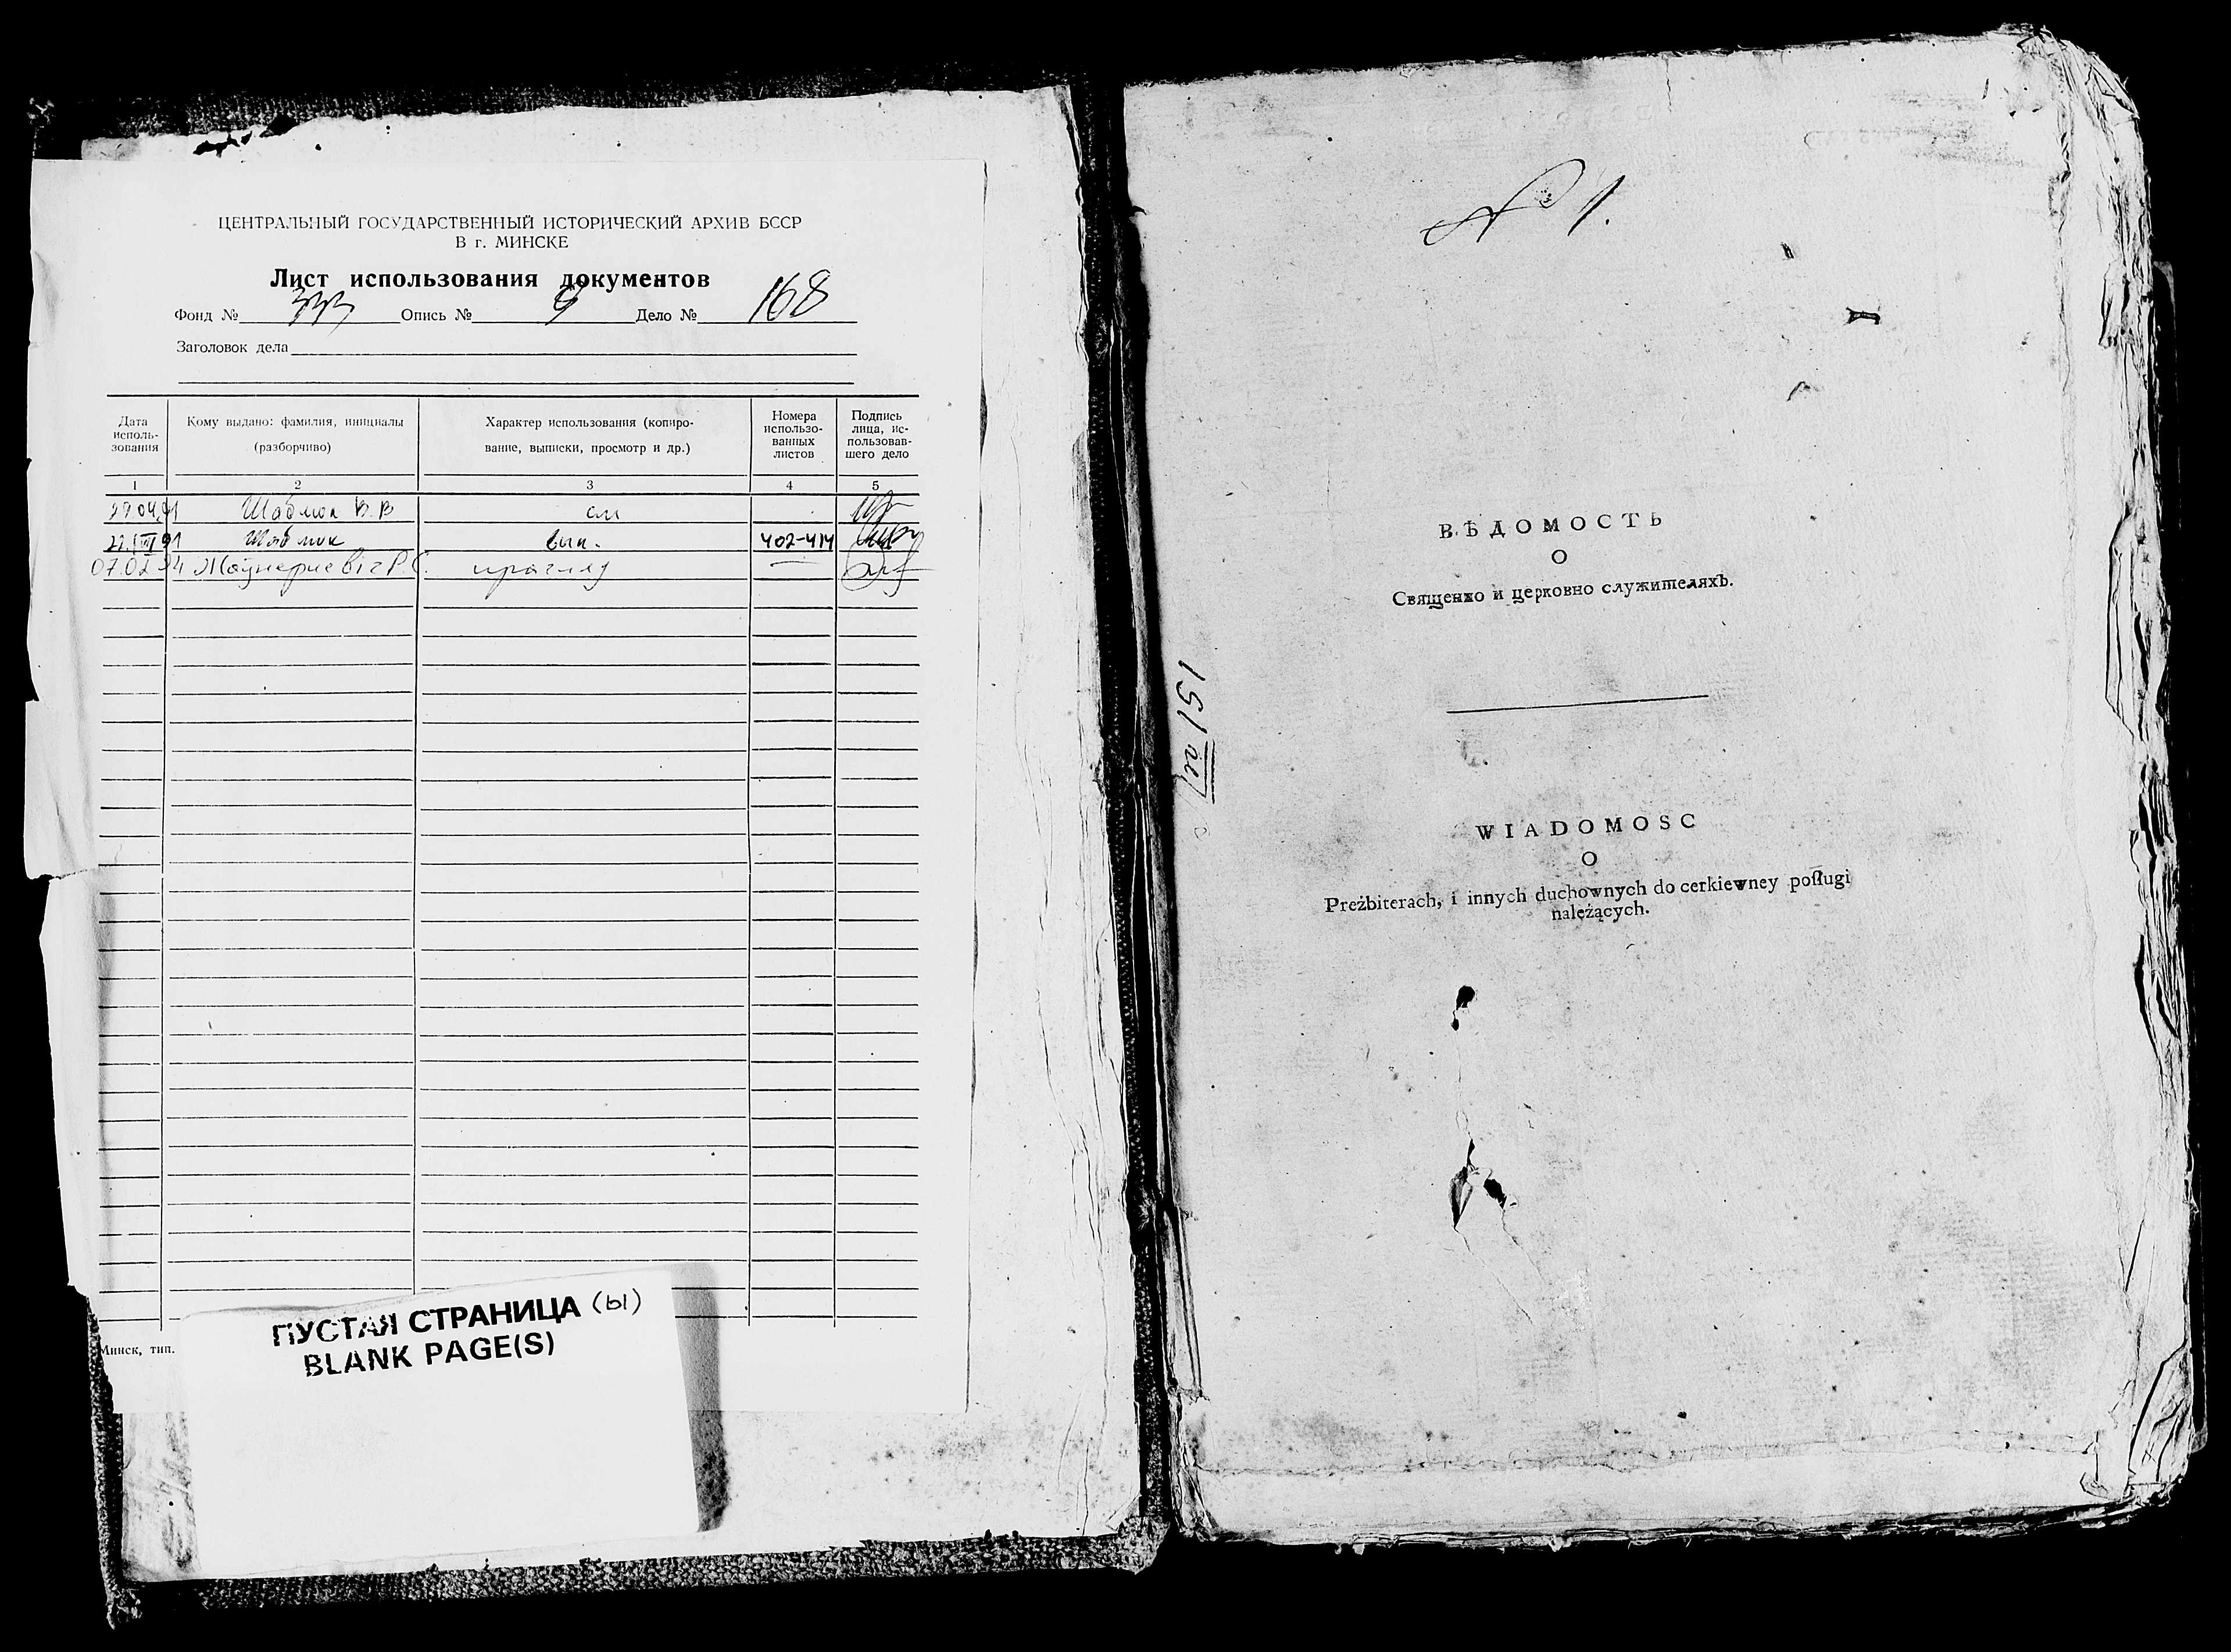 ЦЕНТРАЛЬНЫЙ ГОСУДАРСТВЕННЫЙ ИСТОРИЧЕСКИЙ АРХИВ БССР
В г. МИНСКЕ
Лист использования документов
Фонд № 333 Опись № 9 Дело № 168
Заголовок дела
Дата исполь-зования
Кому выдано: фамилия, инициалы
(разборчиво)
Характер использования (копиро-
вание, выписки, просмотр и др.)
Номера
использо-
ванных
листов
Подпись
лица, ис-
пользовав-
шего дело
1 2 3 4 5
см
вып. 402-414
07.02.94 прагляд
Минск, тип.
ПУСТАЯ СТРАНИЦА (Ы)
BLANK PAGE(S)
№ 1.
ВѢДОМОСТЬ
О
Священно и церковно служителяхЪ.
151
WIADOMOSC
O
Preżbiterach, i innych duchownych do cerkiewney poſługi
należących.